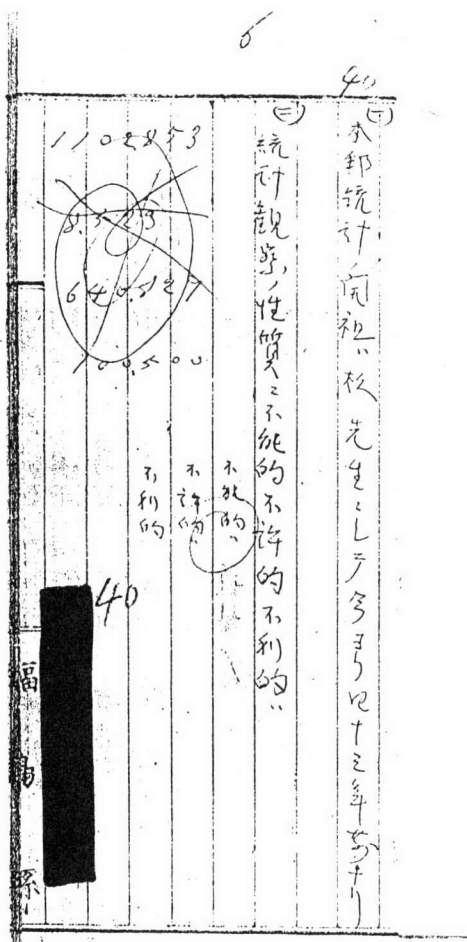 6
40
(一)
本邦統計ノ開祖ハ杉先生ニシテ今ヨリ四十三年前ナリ
(二)
統計観察ノ性質ニ不能的不許的不利的ハ
不能的ハ
不許的ハ
不利的
1102853
8323
100,500
40
福島縣